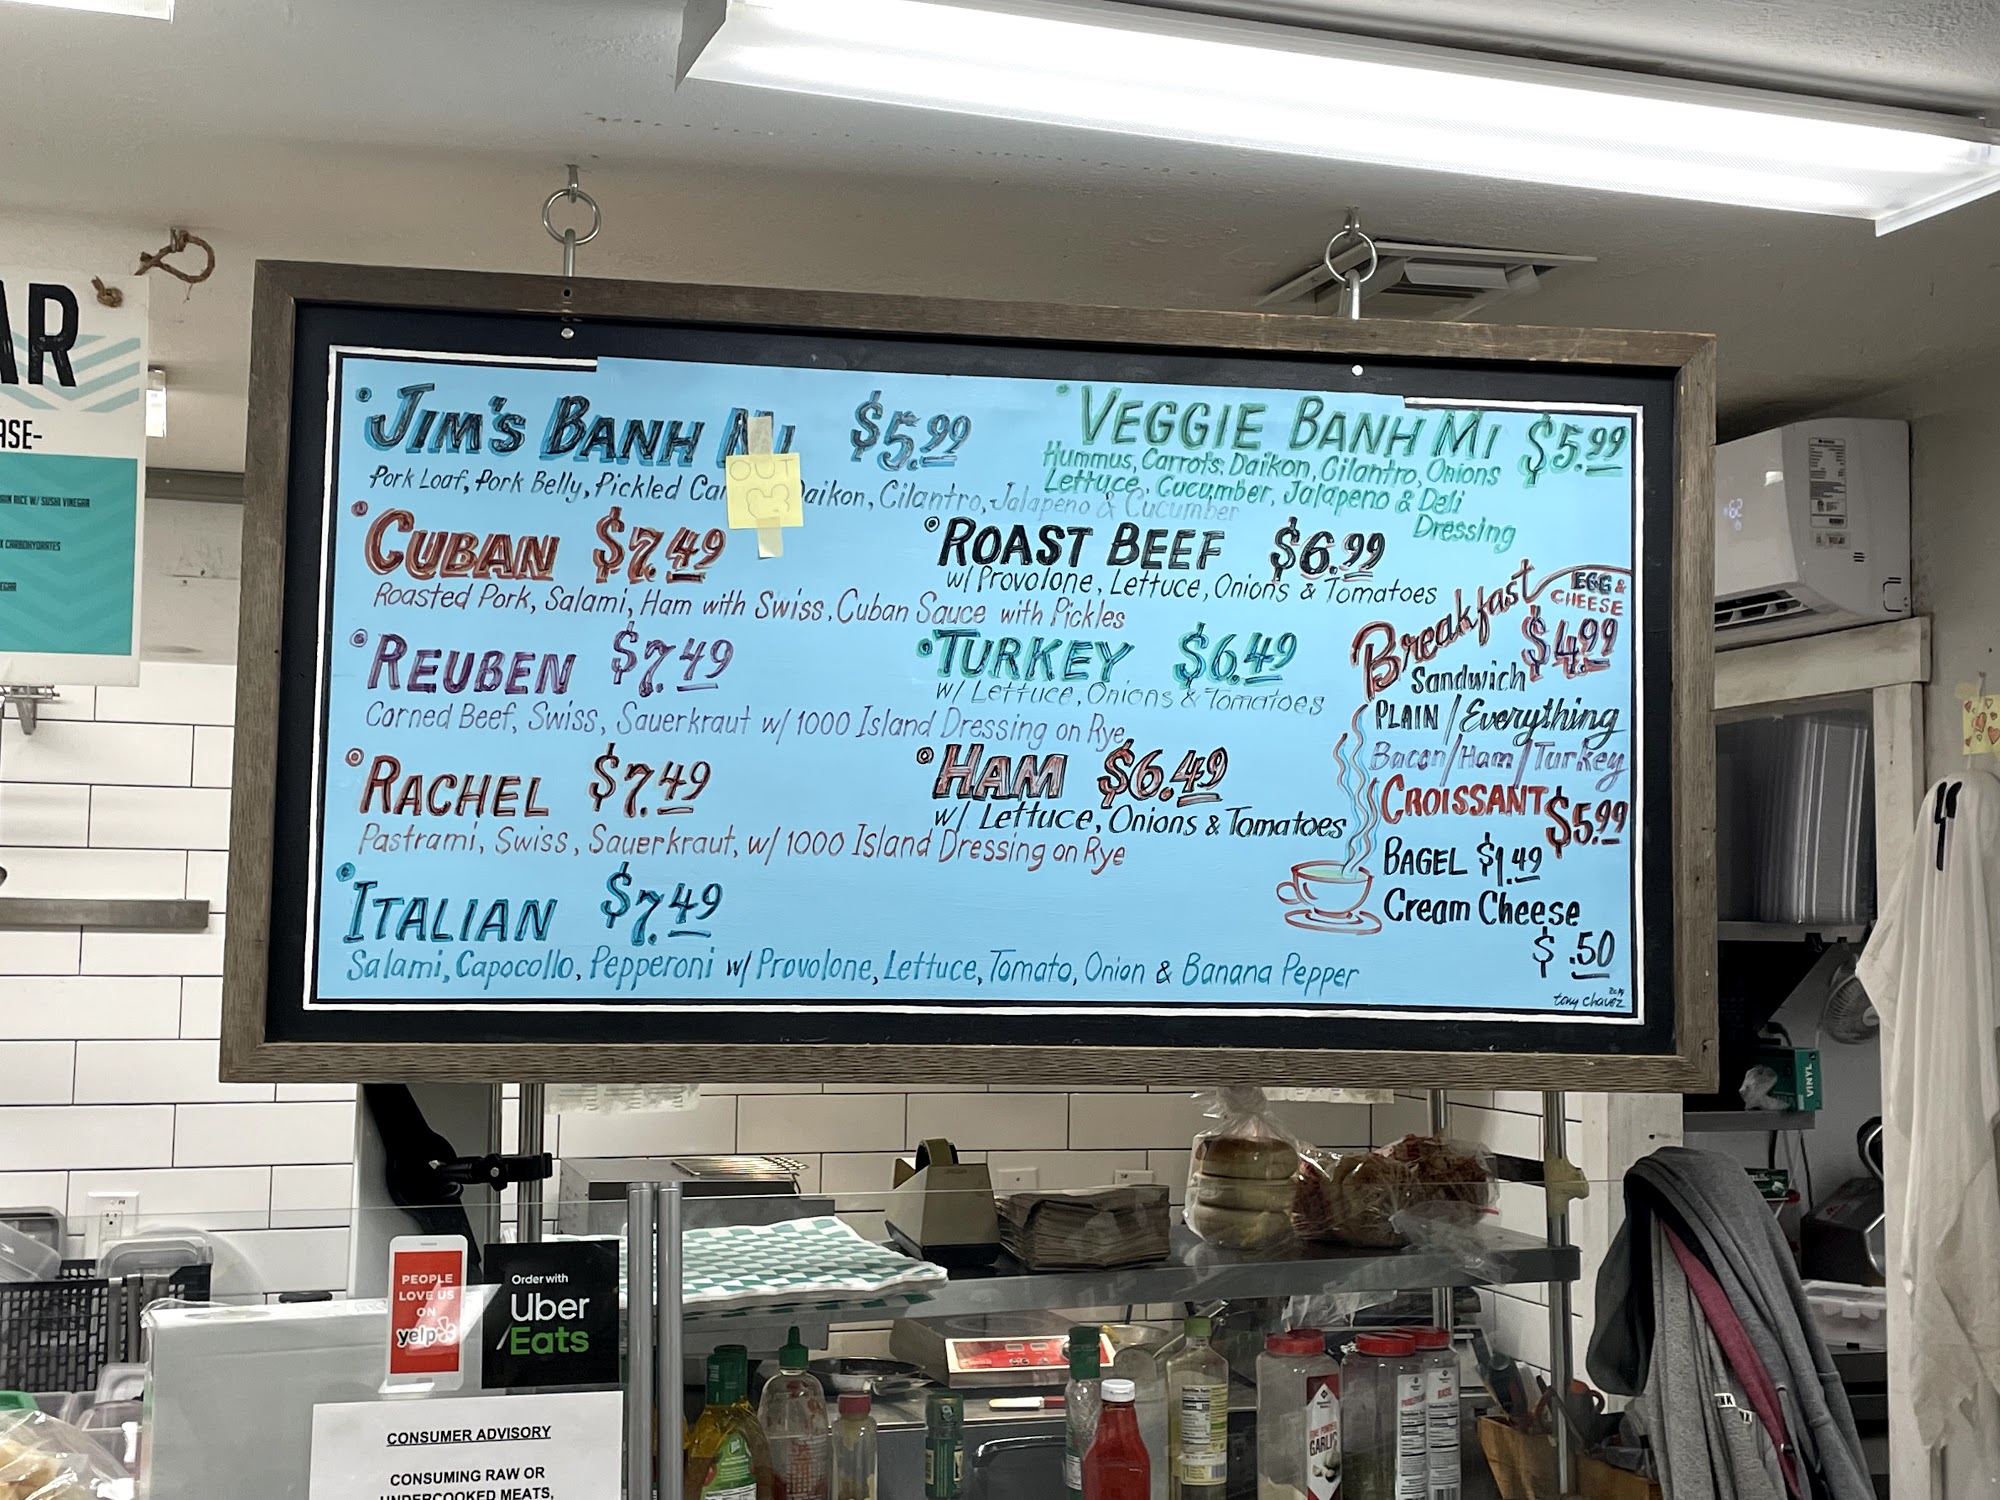 AR
ASE-
JIM'S BANH MI $5.99
OUT
Pork Loaf, Pork Belly, Pickled Car Daikon, Cilantro, Jalapeno & Cucumber
VEGGIE BANH MI $5.99
Hummus, Carrots, Daikon, Cilantro, Onions
Lettuce, Cucumber, Jalapeno & Deli
Dressing
CUBAN $7.49
Roasted Pork, Salami, Ham with Swiss, Cuban Sauce with Pickles
ROAST BEEF $6.99
w/ Provolone, Lettuce, Onions & Tomatoes
REUBEN $7.49
Corned Beef, Swiss, Sauerkraut w/ 1000 Island Dressing on Rye
TURKEY $6.49
w/ Lettuce, Onions & Tomatoes
RACHEL $7.49
Pastrami, Swiss, Sauerkraut, w/ 1000 Island Dressing on Rye
HAM $6.49
w/ Lettuce, Onions & Tomatoes
ITALIAN $7.49
Salami, Capocollo, Pepperoni w/ Provolone, Lettuce, Tomato, Onion & Banana Pepper
Breakfast
EGG &
CHEESE
Sandwich $4.99
PLAIN / Everything
Bacon/Ham/Turkey
CROISSANT $5.99
BAGEL $1.49
Cream Cheese
$ .50
tony chavez
62
VINYL
PEOPLE
LOVE US
ON
yelp
Order with
Uber
Eats
CONSUMER ADVISORY
CONSUMING RAW OR
UNDERCOOKED MEATS,
GARLIC